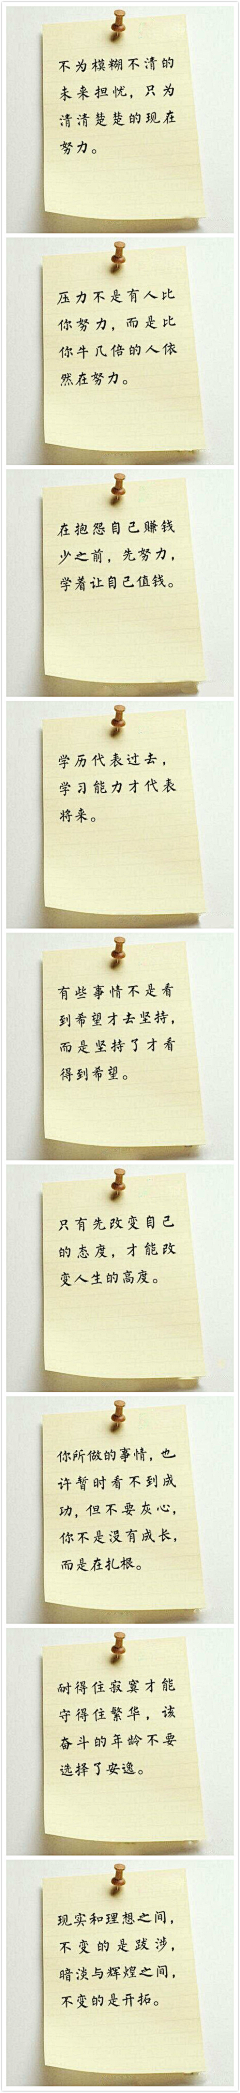 不为模糊不清的
未来担忧，只为
清清楚楚的现在
努力。
压力不是有人比
你努力，而是比
你牛几倍的人依
然在努力。
在抱怨自己赚钱
少之前，先努力，
学着让自己值钱。
学历代表过去，
学习能力才代表
将来。
有些事情不是看
到希望才去坚持，
而是坚持了才看
得到希望。
只有先改变自己
的态度，才能改
变人生的高度。
你所做的事情，也
许暂时看不到成
功，但不要灰心，
你不是没有成长，
而是在扎根。
耐得住寂寞才能
守得住繁华，该
奋斗的年龄不要
选择了安逸。
现实和理想之间，
不变的是跋涉，
暗淡与辉煌之间，
不变的是开拓。